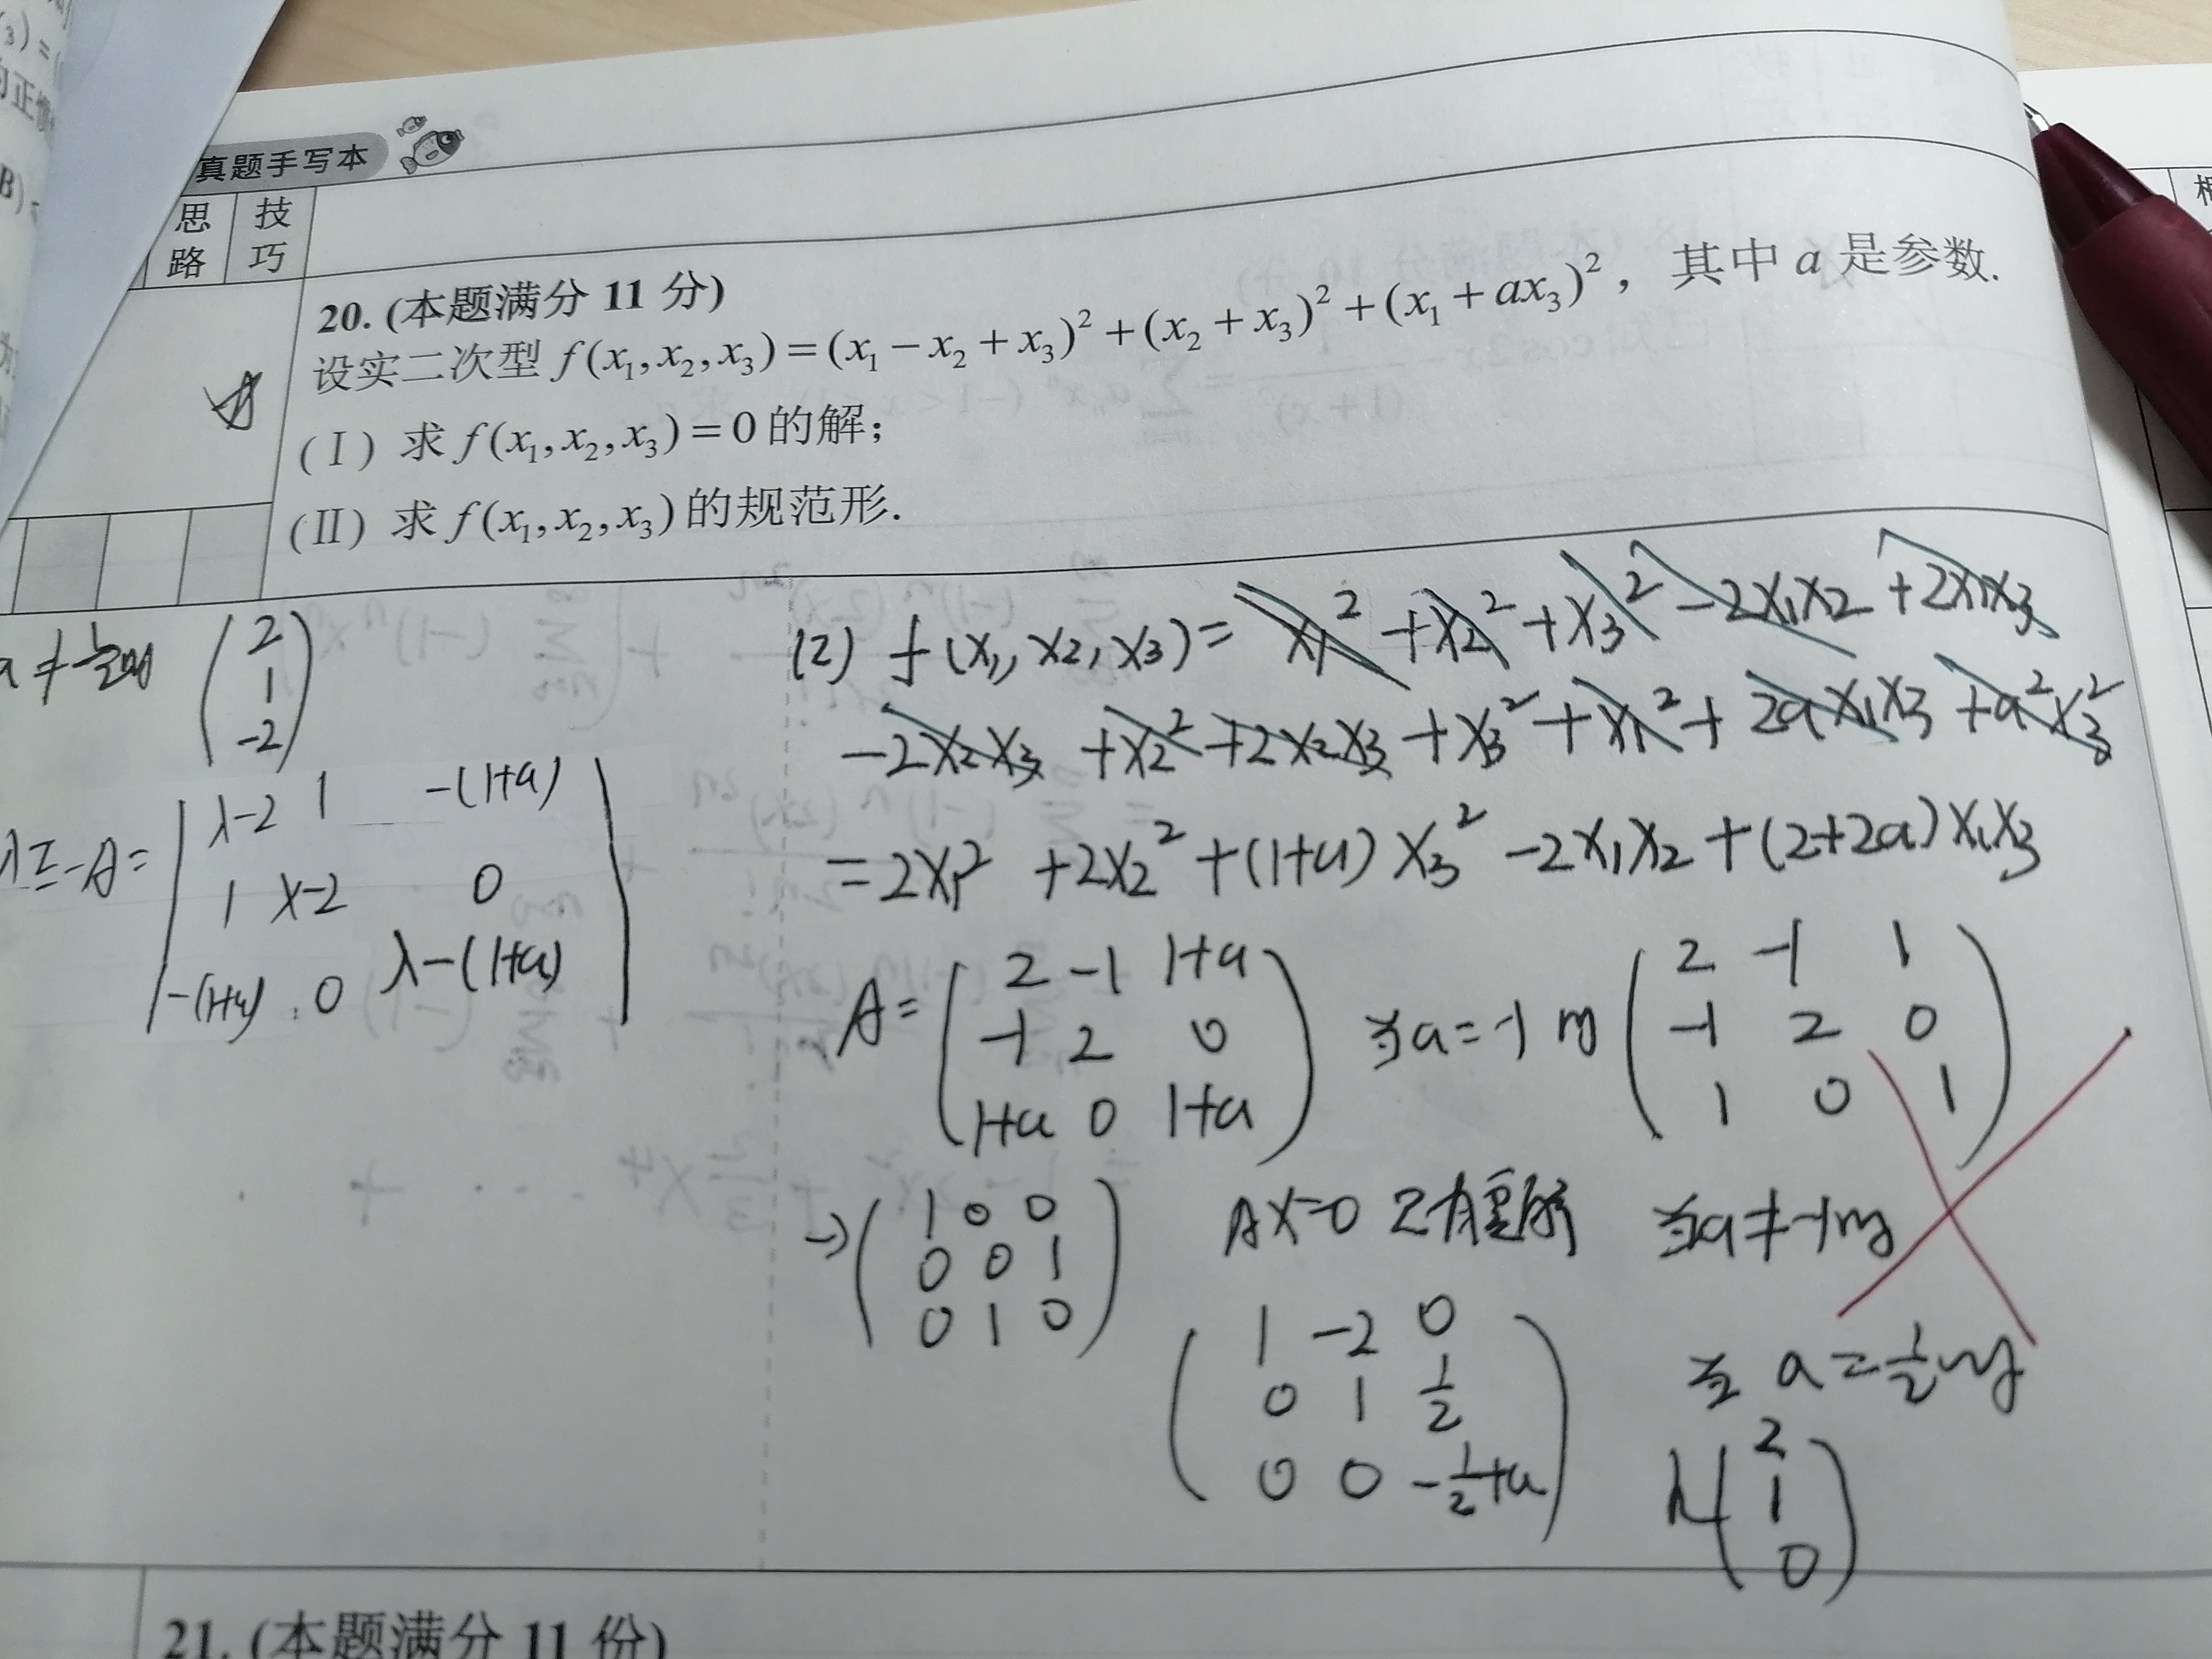 真题手写本
思路
技巧
20. (本题满分 11 分)
设实二次型 f(x₁,x₂,x₃)=(x₁−x₂+x₃)²+(x₂+x₃)²+(x₁+ax₃)², 其中 a 是参数.
(Ⅰ) 求 f(x₁,x₂,x₃)=0 的解;
(Ⅱ) 求 f(x₁,x₂,x₃) 的规范形.
a≠½时 (2 1 -2)
λE-A=
λ-2 1 -(1+a)
1 λ-2 0
-(1+a) 0 λ-(1+a)
(2) f(x₁,x₂,x₃)= x₁² +x₂² +x₃² -2x₁x₂ +2x₁x₃
-2x₂x₃ +x₂² +2x₂x₃ +x₃² +x₁² + 2ax₁x₃ +a²x₃²
=2x₁² +2x₂² +(1+a)x₃² -2x₁x₂ +(2+2a)x₁x₃
A=
2 -1 1+a
-1 2 0
1+a 0 1+a
当a=-1时
2 -1 1
-1 2 0
1 0 1
→
1 0 0
0 0 1
0 1 0
AX=0 只有零解 当a≠-1时
1 -2 0
0 1 ½
0 0 -½+a
当 a=½时
k(2 1 0)
21. (本题满分 11 份)